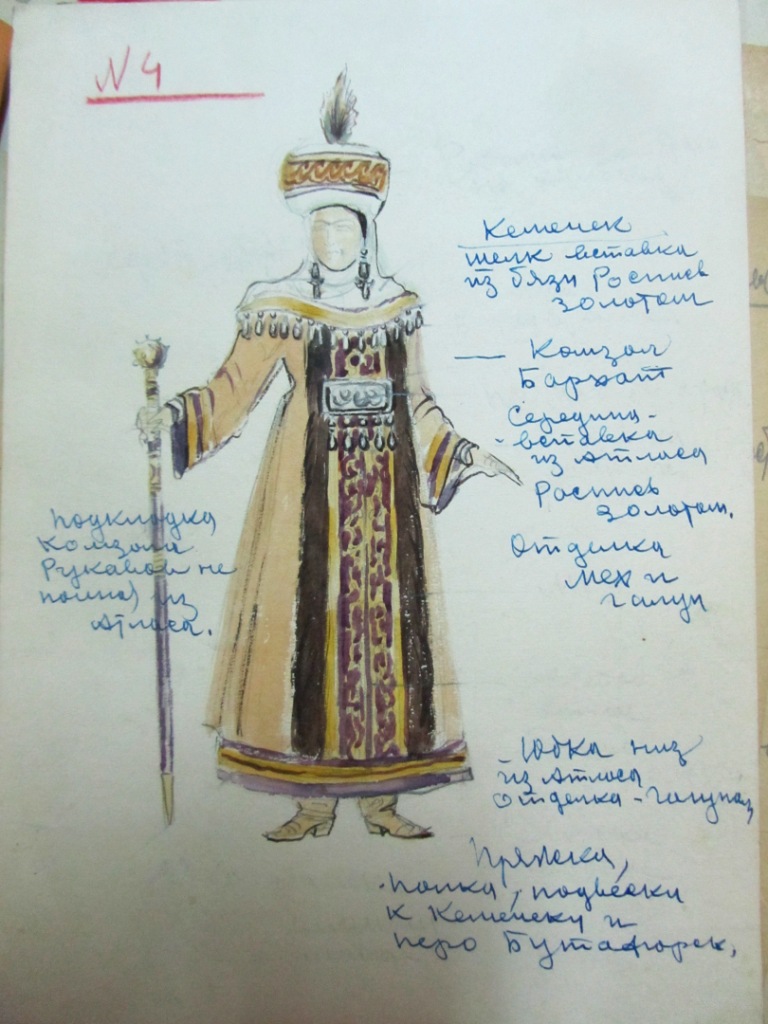 N 4
Кемечек
шелк вставка
из бязи Роспись
золотом
— Комзол
Бархат
Середина -
- вставка
из Атласа
Роспись
золотом.
Отделка
мех и
галун
подкладка
Комзола
Рукавов не
из
Атласа.
- Юбка низ
из Атласа
отделка - галуном
Пряжка,
палка, подвески
к Кемечеку и
перо Бутафорск.